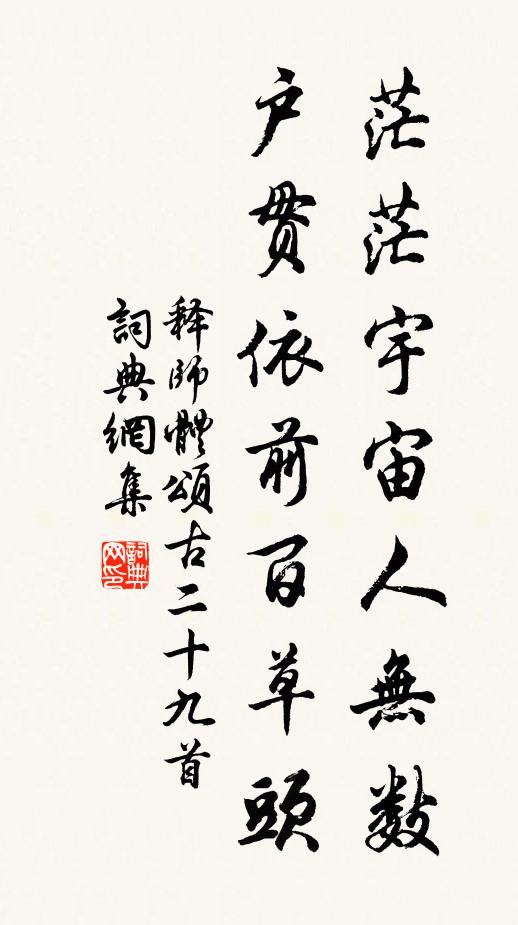 茫茫宇宙人無數
户贯依前百草頭
释師體頌古二十九首
詞典網集
詞典网印